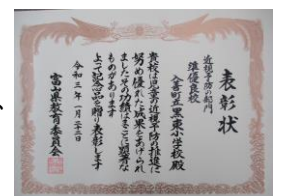 表彰状
近視予防の部門
準優良校
入善町立黒東小学校殿
貴校は児童の近視予防の推進に
努め優れた成果をあげられ
ましたその功績はまことに顕著な
ものがあります
よって記念品を贈り表彰します
令和三年一月二十三日
富山県教育委員会